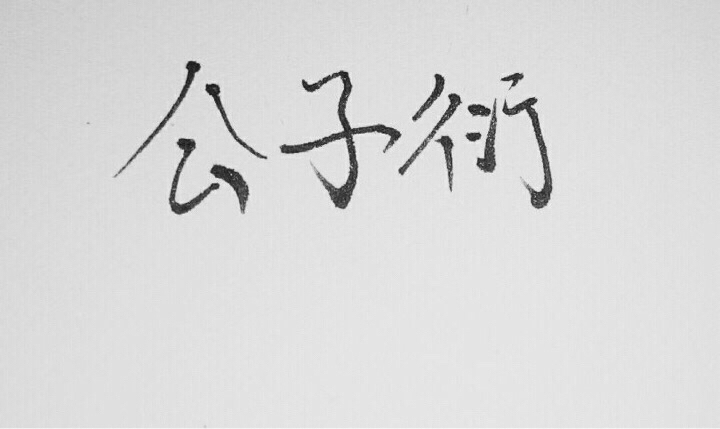 公子衍